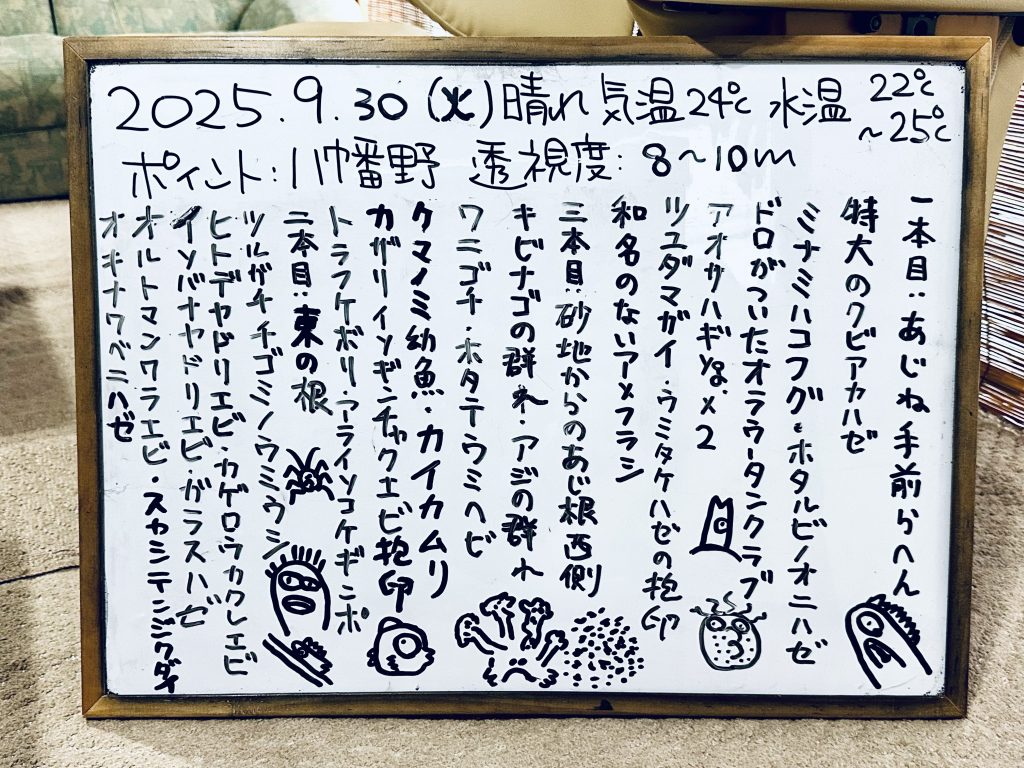 2025.9.30(火)晴れ 気温24℃ 水温 22℃~25℃
ポイント:八幡野 透視度:8~10m
一本目:あじね手前らへん
特大のクビアカハゼ
ミナミハコフグ・ホタルビノオニハゼ
ドロがついたオラウータンクラブ
アオサハギyg.×2
ツユダマガイ・ウミタケハゼの抱卵
和名のないアメフラシ
三本目:砂地からのあじ根西側
キビナゴの群れ・アジの群れ
ワニゴチ・ホタテウミヘビ
クマノミ幼魚・カイカムリ
カザリイソギンチャクエビ抱卵
トラフケボリ・アライソコケギンポ
二本目:東の根
ツルガチゴミノウミウシ
ヒトデヤドリエビ・カゲロウカクレエビ
イソバナヤドリエビ・ガラスハゼ
オルトマンワラエビ・スカシテンジクダイ
オキナワベニハゼ